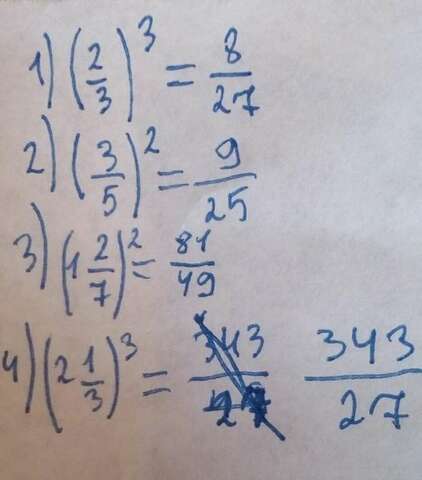 1) (2/3)^3 = 8/27
2) (3/5)^2 = 9/25
3) (1 2/7)^2 = 81/49
4) (2 1/3)^3 = 343/27